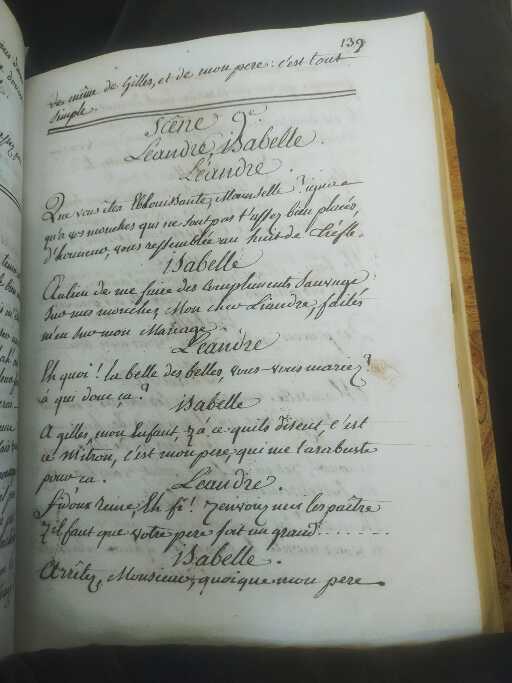 139
de même de Gilles, et de mon pere : c'est tout
simple.
Scêne 9e.
Leandre, isabelle.
Léandre.
Que vous êtes Eblouissante, Mamselle !
qu'a vos mouches qui ne sont pas t'assez bien placées,
d'honneur, vous ressemblée au huit de Tréfle.
isabelle
Aulieu de me faire des compliments sauvage
sur mes mouches, Mon cher Liandre, faites
m'en sur mon Mariage.
Léandre
Eh quoi ! la belle des belles, vous-vous mariez ?
a qui donc ça ?
isabelle
A gilles, mon Enfant, z'a ce qu'ils disent, c'est
ce Mitron, c'est mon pere, qui me tarabuste
pour ça.
Leandre.
fi ! Eh fi ! z'envoyez moi les paître
z'il faut que votre pere soit un grand.......
isabelle.
Arrêtez, Monsieur, quoique mon pere